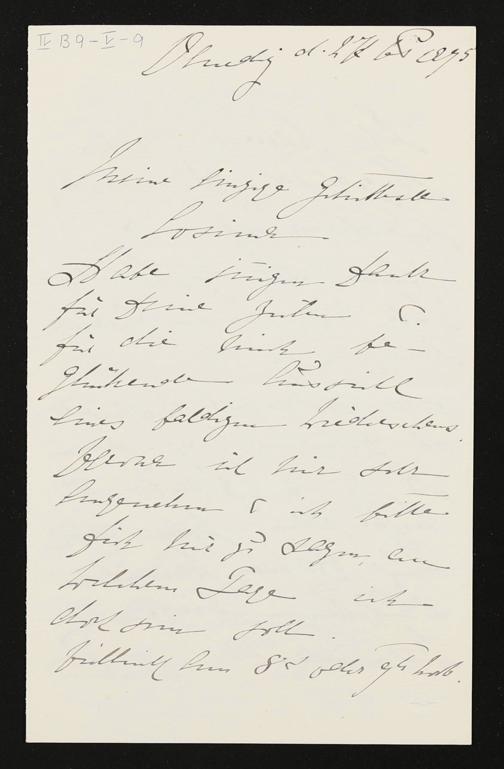 II B9-V-9
Venedig d. 27 1895
Meine einzige geliebteste
Cosima
Habe innigen Dank
für Deine Zeilen &
für die mich be-
glückende Aussicht
eines baldigen Wiedersehens.
ist mir sehr
angenehm & ich bitte
Dich mir zu sagen, an
welchem Tage ich
dort sein soll.
vielleicht am 8t oder 9t